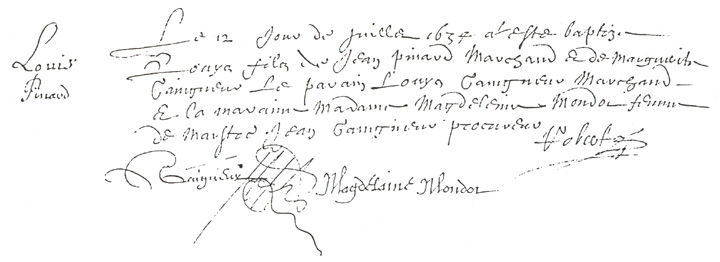 Louis
Pinard
Le 12 Jour de Juillet 1634 a este baptize
Louys filz de Jean pinard Marchand & de Marguerite
Gaigneur Le parain Louys Gaigneur Marchand
& la maraine Madame Magdelene Mondor femme
de Maistre Jean Gaigneur procureur
Gaigneur
Magdelaine Mondor